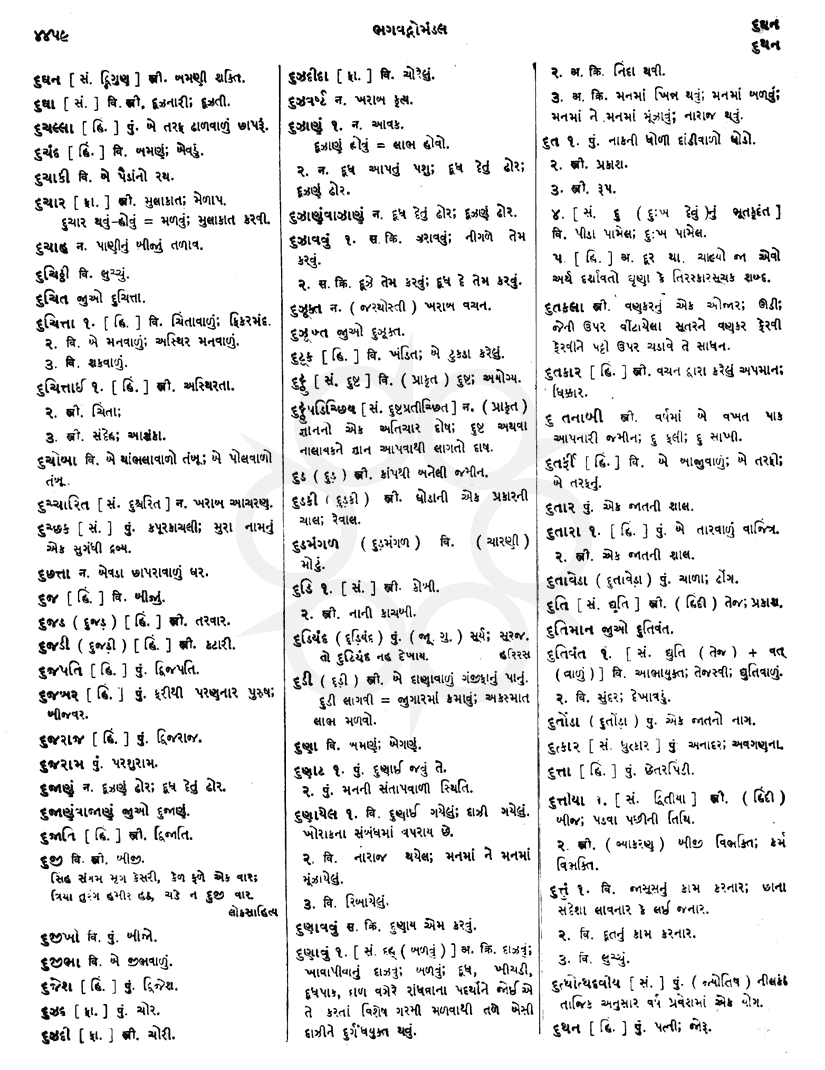 ૪૪૫૯
ભગવદ્ગોમંડલ
દુથન
દુથન
દુઘન [ સં. દ્વિગુણ ] સ્ત્રી. બમણી શક્તિ.
દુઘા [ સં. ] વિ. સ્ત્રી. દૂઝનારી; દૂઝતી.
દુચલ્લા [ હિં. ] પું. બે તરફ ઢાળવાળું છાપરું.
દુચંદ [ હિં. ] વિ. બમણું; બેવડું.
દુચાકી વિ. બે પૈડાંનો રથ.
દુચાર [ ફા. ] સ્ત્રી. મુલાકાત; મેળાપ.
દુચાર થવું-હોવું = મળવું; મુલાકાત કરવી.
દુચાહ ન. પાણીનું બીજું તળાવ.
દુચિઠ્ઠી વિ. લુચ્ચું.
દુચિત જુઓ દુચિત્તા.
દુચિત્તા ૧. [ હિં. ] વિ. ચિંતાવાળું; ફિકરમંદ.
૨. વિ. બે મનવાળું; અસ્થિર મનવાળું.
૩. વિ. શકવાળું.
દુચિત્તાઈ ૧. [ હિં. ] સ્ત્રી. અસ્થિરતા.
૨. સ્ત્રી. ચિંતા;
૩. સ્ત્રી. સંદેહ; આશંકા.
દુચોબા વિ. બે થાંભલાવાળો તંબૂ; બે પોલવાળો
તંબૂ.
દુચ્ચારિત [ સં. દુશ્ચરિત ] ન. ખરાબ આચરણ.
દુચ્છક [ સં. ] પું. કપૂરકાચલી; મુરા નામનું
એક સુગંધી દ્રવ્ય.
દુછત્તા ન. બેવડા છાપરાવાળું ઘર.
દુજ [ હિં. ] વિ. બીજું.
દુજડ ( દુજડ઼ ) [ હિં. ] સ્ત્રી. તરવાર.
દુજડી ( દુજડ઼ી ) [ હિં. ] સ્ત્રી. કટારી.
દુજપતિ [ હિં. ] પું. દ્વિજપતિ.
દુજબર [ હિં. ] પું. ફરીથી પરણનાર પુરુષ;
બીજવર.
દુજરાજ [ હિં. ] પું. દ્વિજરાજ.
દુજરામ પું. પરશુરામ.
દુજાણું ન. દૂઝણું ઢોર; દૂધ દેતું ઢોર.
દુજાણુંવાજાણું જુઓ દુજાણું.
દુજાતિ [ હિં. ] સ્ત્રી. દ્વિજાતિ.
દુજી વિ. સ્ત્રી. બીજી.
સિંહ સંગમ મૃગ કેસરી, કેળ ફળે એક વાર;
ત્રિયા તુરંગ હમીર હઠ, ચડે ન દુજી વાર.
લોકસાહિત્ય
દુજીખો વિ. પું. બીજો.
દુજીભા વિ. બે જીભવાળું.
દુજેશ [ હિં. ] પું. દ્વિજેશ.
દુઝ્દ [ ફા. ] પું. ચોર.
દુઝ્દી [ ફા. ] સ્ત્રી. ચોરી.
દુઝદીદા [ ફા. ] વિ. ચોરેલું.
દુઝવર્શ્ટ ન. ખરાબ કૃત્ય.
દુઝાણું ૧. ન. આવક.
દૂઝાણું હોવું = લાભ હોવો.
૨. ન. દૂધ આપતું પશુ; દૂધ દેતું ઢોર;
દૂઝણું ઢોર.
દુઝાણુંવાઝાણું ન. દૂધ દેતું ઢોર; દૂઝણું ઢોર.
દુઝાવવું ૧. સ. ક્રિ. ઝરાવવું; નીગળે તેમ
કરવું.
૨. સ. ક્રિ. દૂઝે તેમ કરવું; દૂધ દે તેમ કરવું.
દુઝૂક્ત ન. ( જરથોસ્તી ) ખરાબ વચન.
દુઝૂખ્ત જુઓ દુઝૂક્ત.
દુટૂક [ હિં. ] વિ. ખંડિત; બે ટુકડા કરેલું.
દુટ્ઠુ [ સં. દુષ્ટ ] વિ. ( પ્રાકૃત ) દુષ્ટ; અયોગ્ય.
દુટ્ઠુપડિચ્છિય [ સં. દુષ્ટપ્રતીચ્છિત ] ન. ( પ્રાકૃત )
જ્ઞાનનો એક અતિચાર દોષ; દુષ્ટ અથવા
નાલાયકને જ્ઞાન આપવાથી લાગતો દોષ.
દુડ ( દુડ઼ ) સ્ત્રી. કાંપથી બનેલી જમીન.
દુડકી ( દુડ઼કી ) સ્ત્રી. ઘોડાની એક પ્રકારની
ચાલ; રેવાલ.
દુડમંગળ ( દુડ઼મંગળ ) વિ. ( ચારણી )
મોટું.
દુડિ ૧. [ સં. ] સ્ત્રી. કોબી.
૨. સ્ત્રી. નાની કાચબી.
દુડિયંદ ( દુડ઼િયંદ ) પું. ( જૂ. ગુ. ) સૂર્ય; સૂરજ.
તો દુટિયંદ નહ દેખાય. હરિરસ
દુડી ( દુડ઼ી ) સ્ત્રી. બે દાણાવાળું ગંજીફાનું પાનું.
દુડી લાગવી = જુગારમાં કમાણું; અકસ્માત
લાભ મળવો.
દુણા વિ. બમણું; બેગણું.
દુણાટ ૧. પું. દુણાઈ જવું તે.
૨. પું. મનની સંતાપવાળી સ્થિતિ.
દુણાયેલ ૧. વિ. દુણાઈ ગયેલું; દાઝી ગયેલું.
ખોરાકના સંબંધમાં વપરાય છે.
૨. વિ. નારાજ થયેલ; મનમાં ને મનમાં
મૂંઝાયેલું.
૩. વિ. રિબાયેલું.
દુણાવવું સ. ક્રિ. દુણાય એમ કરવું.
દુણાવું ૧. [ સં. દહ્ ( બળવું ) ] અ. ક્રિ. દાઝવું;
ખાવાપીવાનું દાઝવું; બળવું; દૂધ, ખીચડી,
દૂધપાક, દાળ વગેરે રાંધવાના પદાર્થોને જોઈએ
તે કરતાં વિશેષ ગરમી મળવાથી તળે બેસી
દાઝીને દુર્ગંધયુક્ત થવું.
૨. અ. ક્રિ. નિંદા થવી.
૩. અ. ક્રિ. મનમાં ખિન્ન થવું; મનમાં બળવું;
મનમાં ને મનમાં મૂંઝાવું; નારાજ થવું.
દુત ૧. પું. નાકની ધોળી દાંડીવાળો ઘોડો.
૨. સ્ત્રી. પ્રકાશ.
૩. સ્ત્રી. રૂપ.
૪. [ સં. દુ ( દુઃખ દેવું )નું ભૂતકૃદંત ]
વિ. પીડા પામેલ; દુઃખ પામેલ.
૫. [ હિં. ] અ. દૂર થા. ચાલ્યો જા એવો
અર્થ દર્શાવતો ઘૃણા કે તિરસ્કારસૂચક શબ્દ.
દુતકલા સ્ત્રી. વણકરનું એક ઓજાર; ઊડી;
જેની ઉપર વીંટાયેલા સૂતરને વણકર ફેરવી
ફેરવીને પટ્ટો ઉપર ચડાવે તે સાધન.
દુતકાર [ હિં. ] સ્ત્રી. વચન દ્વારા કરેલું અપમાન;
ધિક્કાર.
દુ તનાબી સ્ત્રી. વર્ષમાં બે વખત પાક
આપનારી જમીન; દુ ફલી; દુ સાખી.
દુતર્ફી [ હિં. ] વિ. બે બાજુવાળું; બે તરફી;
બે તરફનું.
દુતાર પું. એક જાતની શાલ.
દુતારા ૧. [ હિં. ] પું. બે તારવાળું વાજિંત્ર.
૨. સ્ત્રી. એક જાતની શાલ.
દુતાવેડા ( દુતાવેડ઼ા ) પું. ચાળા; ઢોંગ.
દુતિ [ સં. દ્યુતિ ] સ્ત્રી. ( હિંદી ) તેજ; પ્રકાશ.
દુતિમાન જુઓ દુતિવંત.
દુતિવંત ૧. [ સં. દ્યુતિ ( તેજ ) + વત્
( વાળું ) ] વિ. આભાયુક્ત; તેજસ્વી; દ્યુતિવાળું.
૨. વિ. સુંદર; દેખાવડું.
દુતોંડા ( દુતોંડ઼ા ) પું. એક જાતનો નાગ.
દુત્કાર [ સં. ધુત્કાર ] પું અનાદર; અવગણના.
દુત્તા [ હિં. ] પું. છેતરપિંડી.
દુત્તીયા ૧. [ સં. દ્વિતીયા ] સ્ત્રી. ( હિંદી )
બીજ; પડવા પછીની તિથિ.
૨. સ્ત્રી. ( વ્યાકરણ ) બીજી વિભક્તિ; કર્મ
વિભક્તિ.
દુત્તું ૧. વિ. જાસૂસનું કામ કરનાર; છાના
સંદેશા લાવનાર કે લઈ જનાર.
૨. વિ. દૂતનું કામ કરનાર.
૩. વિ. લુચ્ચું.
દુત્થોત્થદવીય [ સં. ] પું. ( જ્યોતિષ ) નીલકંઠ
તાજિક અનુસાર વર્ષ પ્રવેશમાં એક યોગ.
દુથન [ હિં. ] પું. પત્ની; જોરૂ.